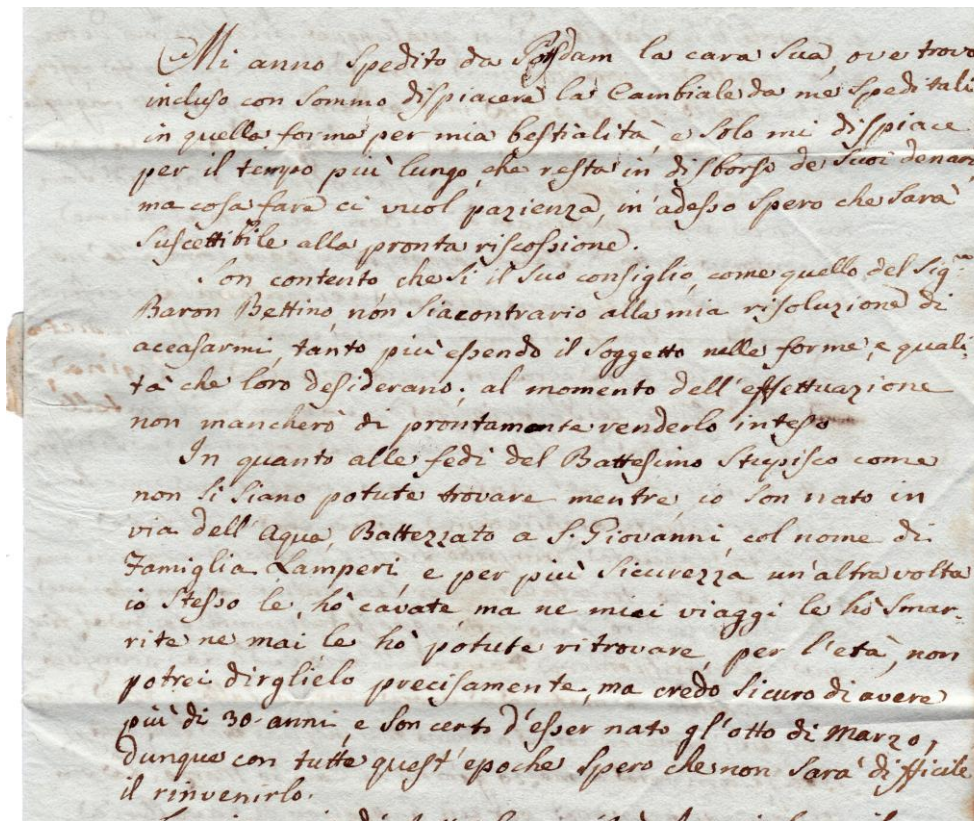 Mi anno spedito da Potsdam la cara sua, ove trovo
incluso con sommo dispiacere la Cambiale da me speditali
in quella forma per mia bestialità, e solo mi dispiace
per il tempo più lungo, che resta in disborso de suoi denari
ma cosa fare ci vuol pazienza, in adesso spero che sarà
suscettibile alla pronta riscossione.
Son contento, che si il suo consiglio, come quello del Sig.re
Baron Bettino, non sia contrario alla mia risoluzione di
accasarmi, tanto più essendo il soggetto nelle forme, e quali-
tà che loro desiderano; al momento dell'effettuazione
non mancherò di prontamente renderlo inteso
In quanto alle fedi del Battesimo stupisco come
non si siano potute trovare mentre, io son nato in
via dell'Aqua, Battezzato a S. Giovanni, col nome di
Famiglia Lamperi, e per più sicurezza un'altra volta
io stesso le, hò cavate, ma ne miei viaggi le hò smar-
rite ne mai le hò potute ritrovare, per l'età, non
potrei dirglielo precisamente, ma credo sicuro di avere
più di 30 anni, e son certo d'esser nato gl'otto di Marzo,
dunque con tutte quest'epoche spero che non sarà difficile
il rinvenirlo.